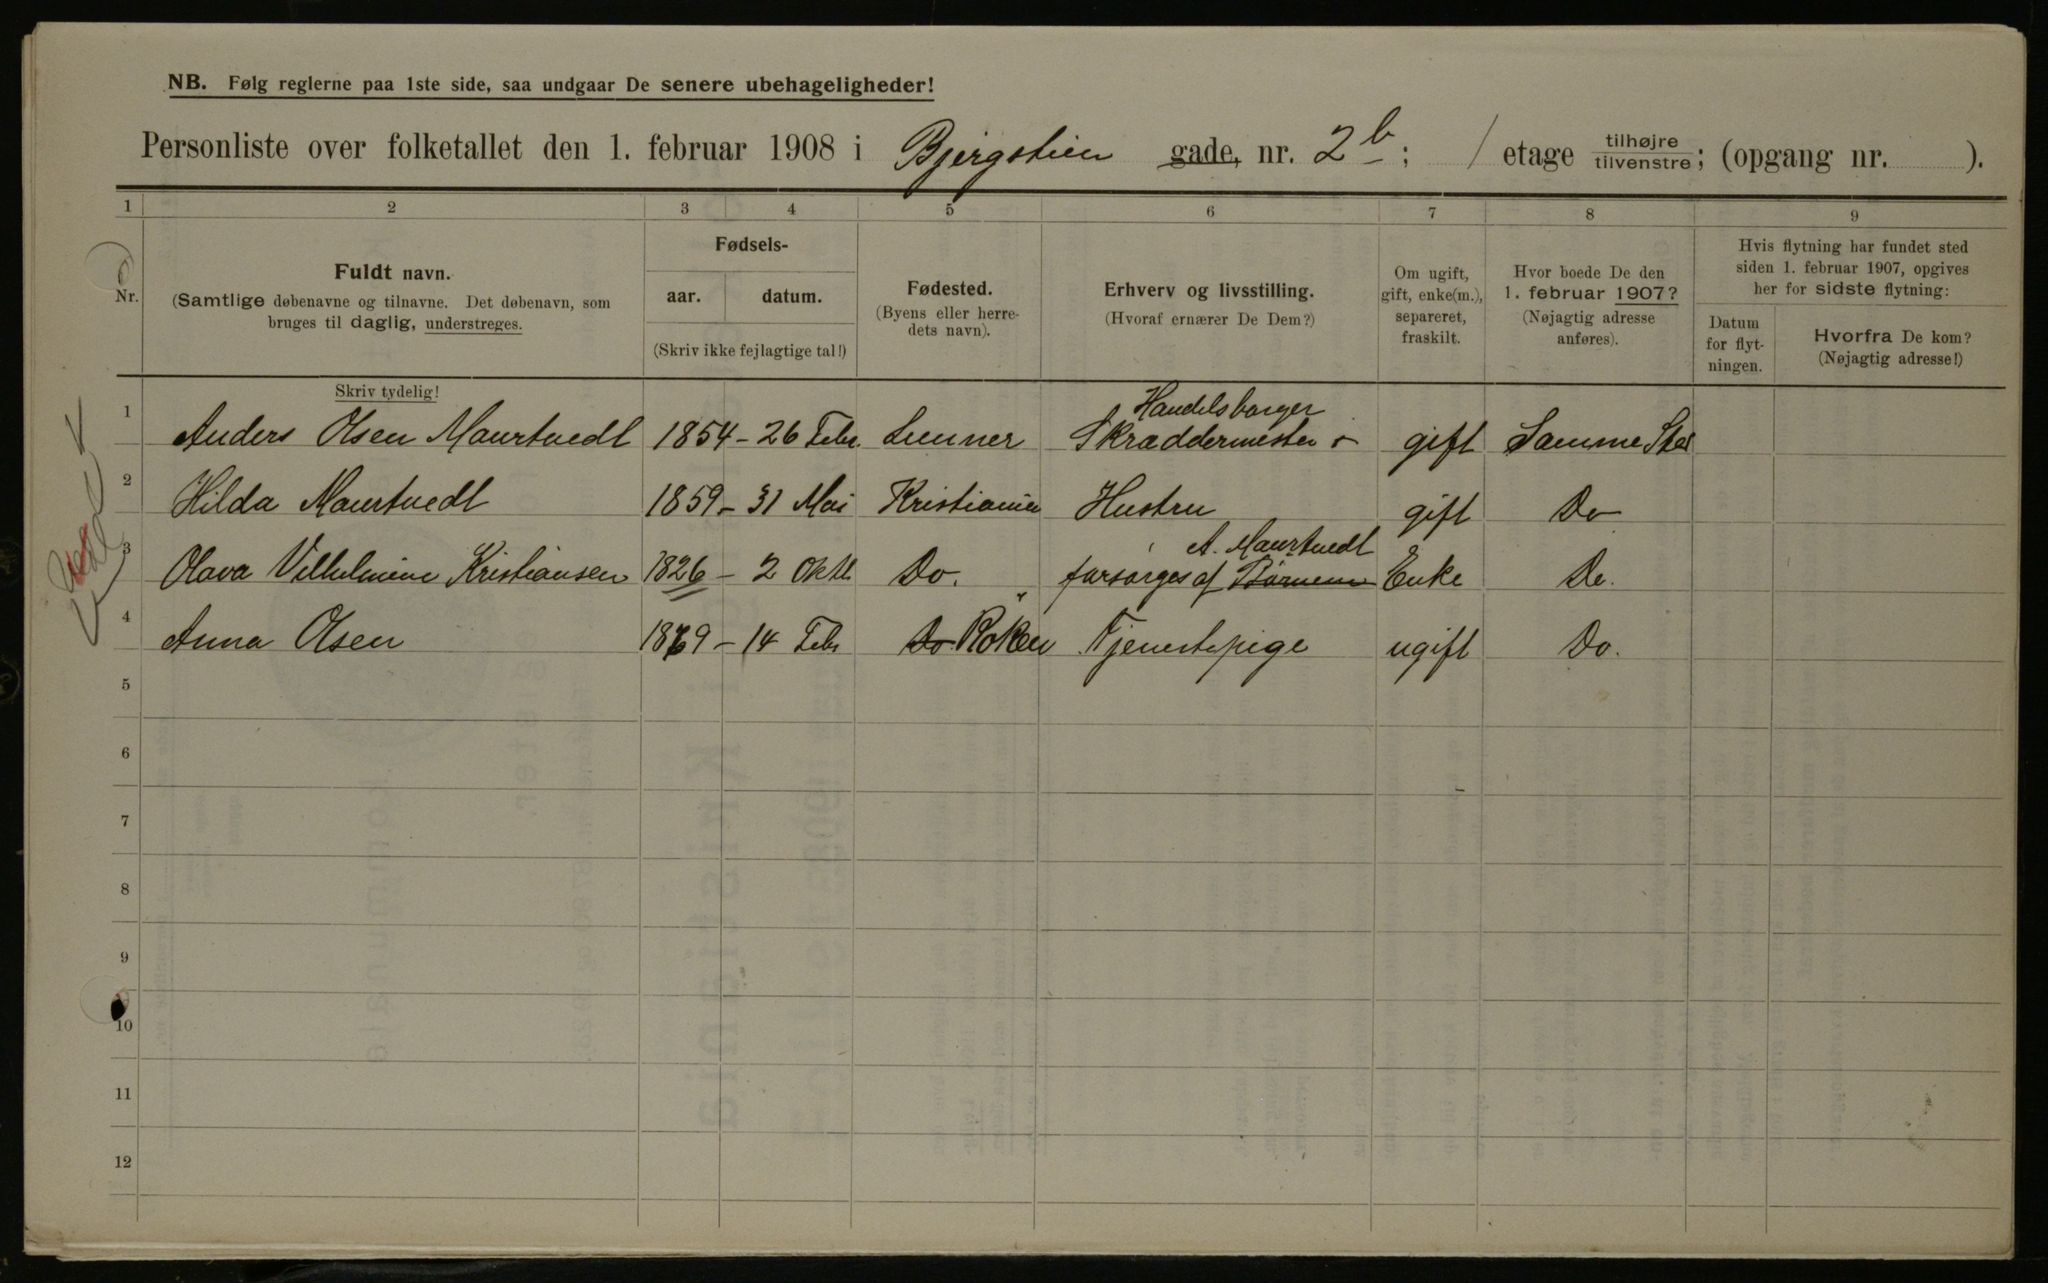 NB. Følg reglerne paa 1ste side, saa undgaar De senere ubehageligheder!
Personliste over folketallet den 1. februar 1908 i Bjergstien gade, nr. 2b; / etage tilhøjre tilvenstre; (opgang nr. ).
1 2 3 4 5 6 7 8 9
Nr.
Fuldt navn.
(Samtlige døbenavne og tilnavne. Det døbenavn, som
bruges til daglig, understreges.
Skriv tydelig!
Fødsels-
aar. datum.
(Skriv ikke fejlagtige tal!)
Fødested.
(Byens eller herre-
dets navn).
Erhverv og livsstilling.
(Hvoraf ernærer De Dem?)
Om ugift,
gift, enke(m.),
separeret,
fraskilt.
Hvor boede De den
1. februar 1907?
(Nøjagtig adresse
anføres).
Hvis flytning har fundet sted
siden 1. februar 1907, opgives
her for sidste flytning:
Datum
for flyt-
ningen.
Hvorfra De kom?
(Nøjagtig adresse!)
Handelsborger
1 Anders Olsen Maurtvedt 1854 - 26 Febr. Lunner Skræddermester gift Samme Sted
2 Hilda Maurtvedt 1859 - 31 Mai Kristiania Hustru gift Do
A. Maurtvedt
3 Olava Vilhelmine Kristiansen 1826 - 2 Oktb Do. forsørges af Børnene Enke Do.
4 Anna Olsen 1879 - 14 Febr Do Røken Tjenestepige ugift Do.
5
6
7
8
9
10
11
12